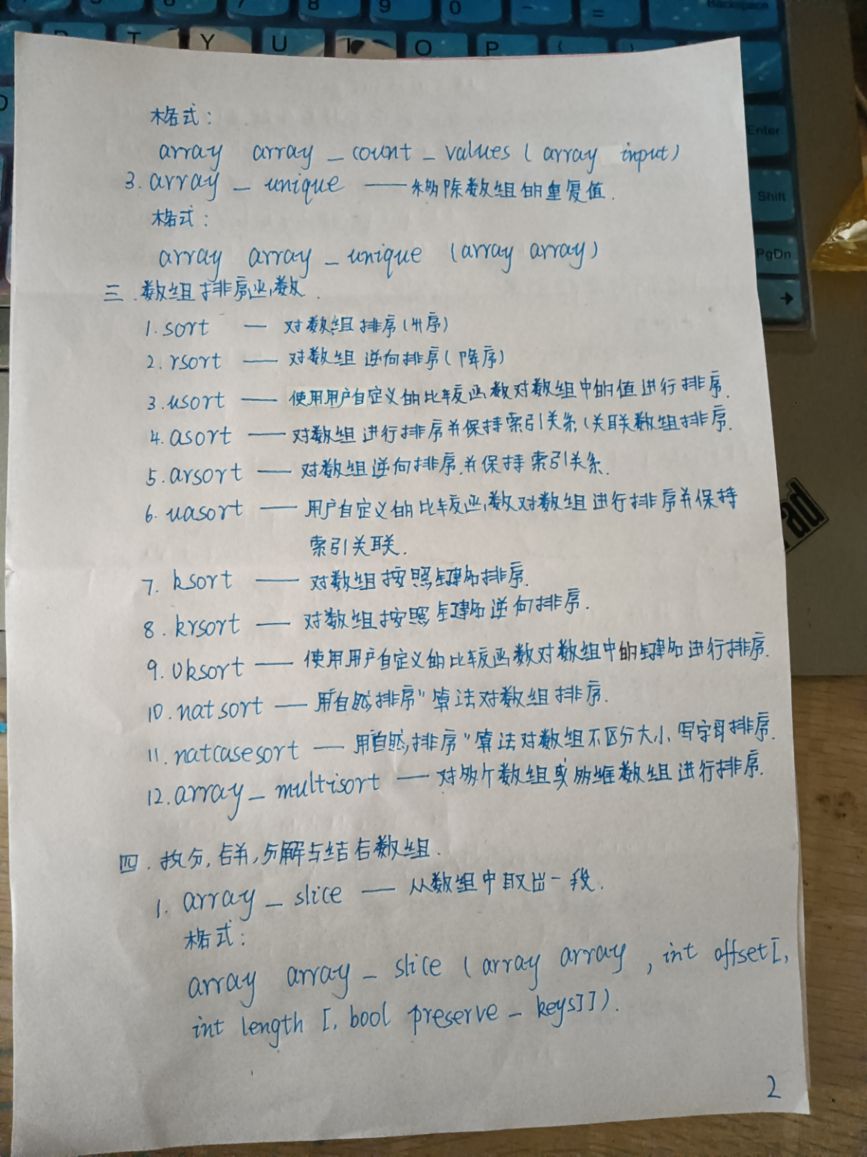 7 8 9 0 - = Backspace
T Y U I O P
格式:
array array_count_values (array input)
Enter
3. array_unique ——移除数组的重复值.
Shift
格式:
array array_unique (array array)
PgDn
三.数组排序函数.
1. sort — 对数组排序(升序)
2. rsort — 对数组逆向排序(降序)
3. usort — 使用用户自定义的比较函数对数组中的值进行排序.
4. asort — 对数组进行排序并保持索引关系(关联数组排序.
5. arsort — 对数组逆向排序.并保持索引关系.
6. uasort — 用户自定义的比较函数对数组进行排序并保持
索引关联.
7. ksort — 对数组按照键名排序.
8. krsort — 对数组按照键名逆向排序.
9. Uksort — 使用用户自定义的比较函数对数组中的键名进行排序.
10. natsort — 用"自然排序"算法对数组排序.
11. natcasesort — 用"自然排序"算法对数组不区分大小写字母排序.
12. array_multisort — 对多个数组或多维数组进行排序.
四.拆分,合并,分解与结合数组.
1. array_slice — 从数组中取出一段.
格式:
array array_slice (array array, int offset[,
int length [, bool preserve_keys]]).
2